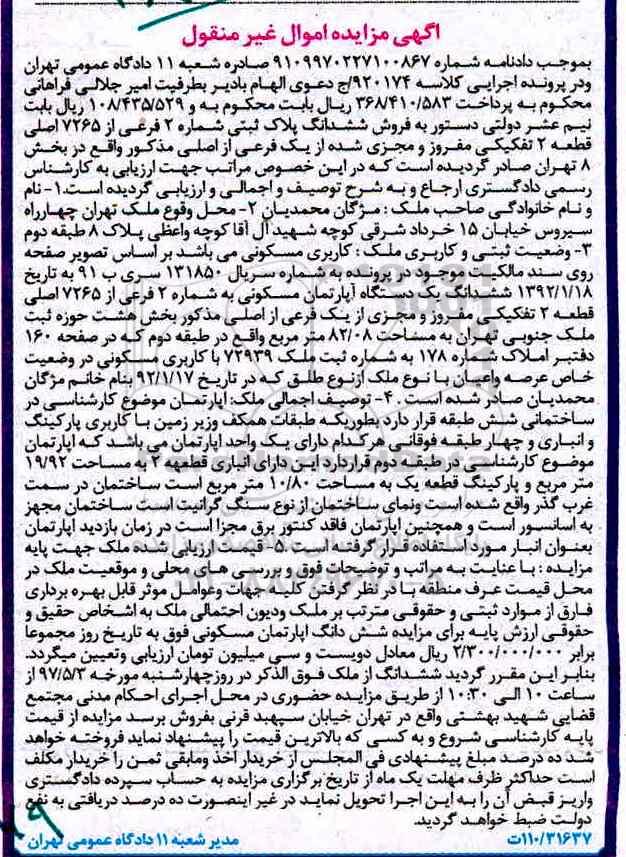 آگهی مزایده اموال غیر منقول
بموجب دادنامه شماره ۹۱۰۹۹۷۰۲۲۷۱۰۰۸۶۷ صادره شعبه ۱۱ دادگاه عمومی تهران
ودر پرونده اجرایی کلاسه ۹۲۰۱۷۴/ج دعوی الهام بادیر بطرفیت امیر جلالی فراهانی
محکوم به پرداخت ۳۶۸/۴۱۰/۵۸۳ ریال بابت محکوم به و ۱۰۸/۴۳۵/۵۲۹ ریال بابت
نیم عشر دولتی دستور به فروش ششدانگ پلاک ثبتی شماره ۲ فرعی از ۷۲۶۵ اصلی
قطعه ۲ تفکیکی مفروز و مجزی شده از یک فرعی از اصلی مذکور واقع در بخش
۸ تهران صادر گردیده است که در این خصوص مراتب جهت ارزیابی به کارشناس
رسمی دادگستری ارجاع و به شرح توصیف و اجمالی و ارزیابی گردیده است.۱- نام
و نام خانوادگی صاحب ملک : مژگان محمدیان ۲- محل وقوع ملک تهران چهارراه
سیروس خیابان ۱۵ خرداد شرقی کوچه شهید آل آقا کوچه واعظی پلاک ۸ طبقه دوم
۳- وضعیت ثبتی و کاربری ملک : کاربری مسکونی می باشد بر اساس تصویر صفحه
روی سند مالکیت موجود در پرونده به شماره سریال ۱۳۱۸۵۰ سری ب ۹۱ به تاریخ
۱۳۹۲/۱/۱۸ ششدانگ یک دستگاه آپارتمان مسکونی به شماره ۲ فرعی از ۷۲۶۵ اصلی
قطعه ۲ تفکیکی مفروز و مجزی از یک فرعی از اصلی مذکور بخش هشت حوزه ثبت
ملک جنوبی تهران به مساحت ۸۲/۰۸ متر مربع واقع در طبقه دوم که در صفحه ۱۶۰
دفتبر املاک شماره ۱۷۸ به شماره ثبت ملک ۷۲۹۳۹ با کاربری مسکونی در وضعیت
خاص عرصه واعیان با نوع ملک ازنوع طلق که در تاریخ ۹۲/۱/۱۷ بنام خانم مژگان
محمدیان صادر شده است . ۴- توصیف اجمالی ملک: آپارتمان موضوع کارشناسی در
ساختمانی شش طبقه قرار دارد بطوریکه طبقات همکف وزیر زمین با کاربری پارکینگ
و انباری و چهار طبقه فوقانی هرکدام دارای یک واحد آپارتمان می باشد که آپارتمان
موضوع کارشناسی در طبقه دوم قراردارد این دارای انباری قطعهه ۲ به مساحت ۱۹/۹۲
متر مربع و پارکینگ قطعه یک به مساحت ۱۰/۸۰ متر مربع است ساختمان در سمت
غرب گذر واقع شده است ونمای ساختمان از نوع سنگ گرانیت است ساختمان مجهز
به آسانسور است و همچنین آپارتمان فاقد کنتور برق مجزا است در زمان بازدید آپارتمان
بعنوان انبار مورد استفاده قرار گرفته است .۵- قیمت ارزیابی شده ملک جهت پایه
مزایده : با عنایت به مراتب و توضیحات فوق و بررسی های محلی و موقعیت ملک در
محل قیمت عرف منطقه با در نظر گرفتن کلیه جهات وعوامل موثر قابل بهره برداری
فارق از موارد ثبتی و حقوقی مترتب بر ملک ودیون احتمالی ملک به اشخاص حقیق و
حقوقی ارزش پایه برای مزایده شش دانگ آپارتمان مسکونی فوق به تاریخ روز مجموعا
برابر ۲/۳۰۰/۰۰۰/۰۰۰ ریال معادل دویست و سی میلیون تومان ارزیابی وتعیین میگردد.
بنابر این مقرر گردید ششدانگ از ملک فوق الذکر در روزچهارشنبه مورخه ۹۷/۵/۳ از
ساعت ۱۰ الی ۱۰:۳۰ از طریق مزایده حضوری در محل اجرای احکام مدنی مجتمع
قضایی شهید بهشتی واقع در تهران خیابان سپهبد قرنی بفروش برسد مزایده از قیمت
پایه کارشناسی شروع و به کسی که بالاترین قیمت را پیشنهاد نماید فروخته خواهد
شد ده درصد مبلغ پیشنهادی فی المجلس از خریدار اخذ ومابقی ثمن را خریدار مکلف
است حداکثر ظرف مهلت یک ماه از تاریخ برگزاری مزایده به حساب سپرده دادگستری
واریز قبض آن را به این اجرا تحویل نماید در غیر اینصورت ده درصد دریافتی به نفع
دولت ضبط خواهد گردید.
۱۱۰/۳۱۶۳۷ت مدیر شعبه ۱۱ دادگاه عمومی تهران